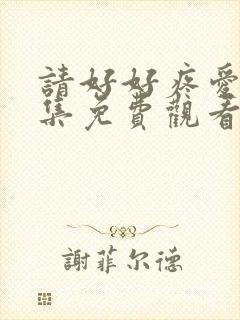 請好好疼愛
集免費觀看
謝菲尔德